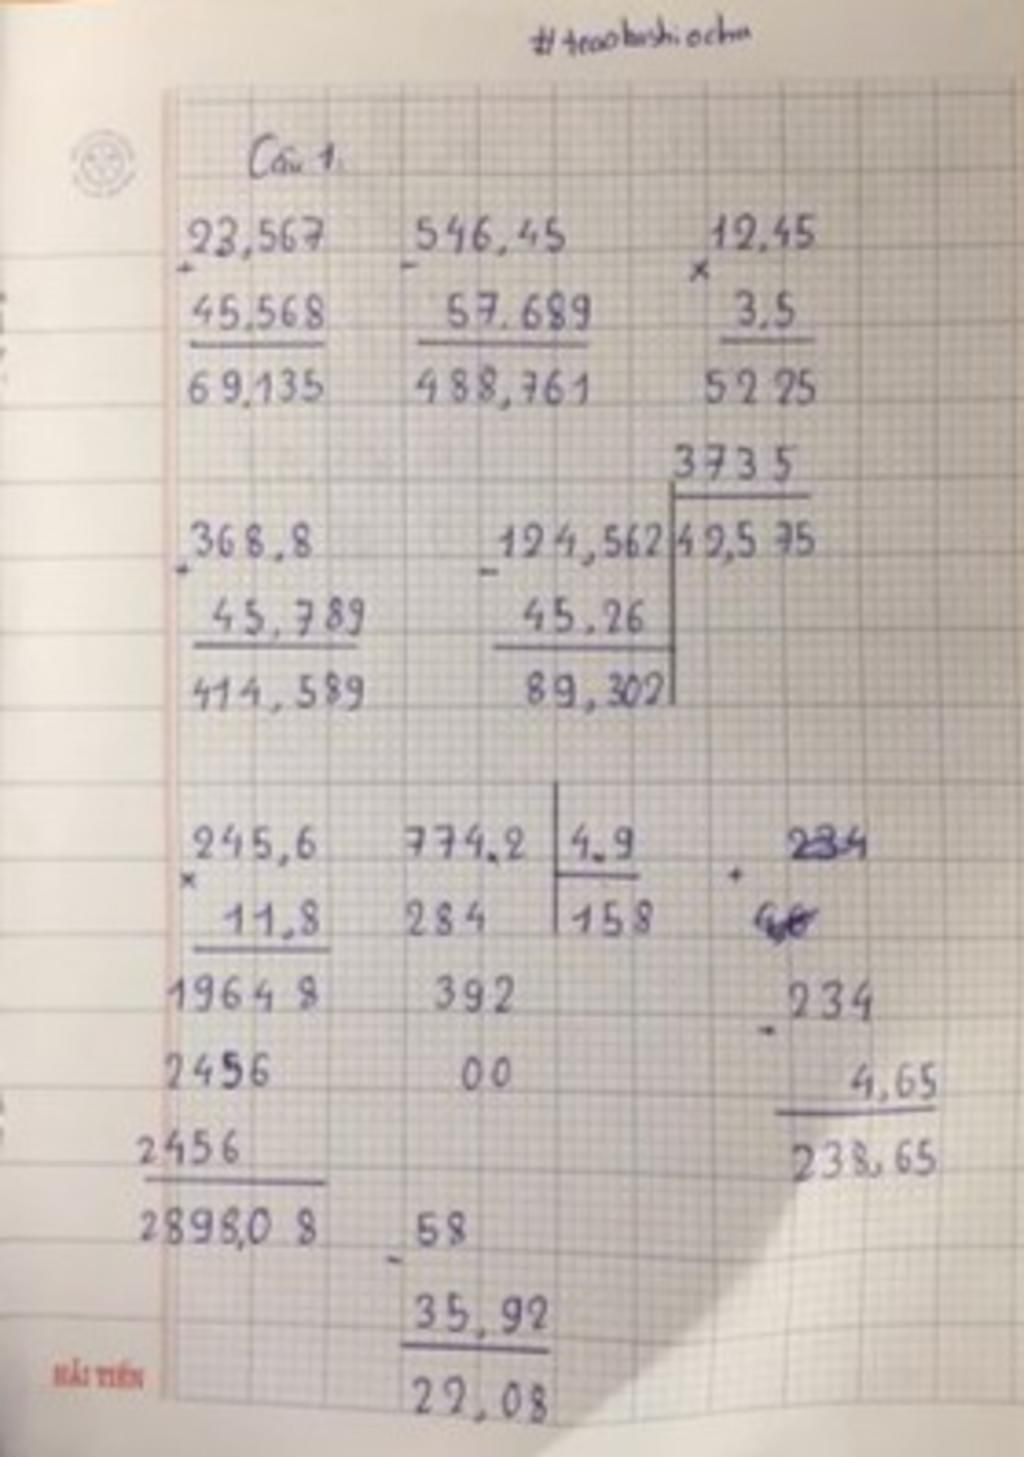 #teaobashiocha
Câu 1.
23,567 546,45 12,45
+ - ×
45,568 57.689 3,5
69,135 488,761 5225
3735
368,8 124,562 42,575
+ -
45,789 45,26
414,589 89,302
245,6 774,2 4,9 234
× +
11,8 284 158
19648 392 234
-
2456 00 4,65
2456 238,65
2898,08 58
-
35,92
22,08
HẢI TIẾN